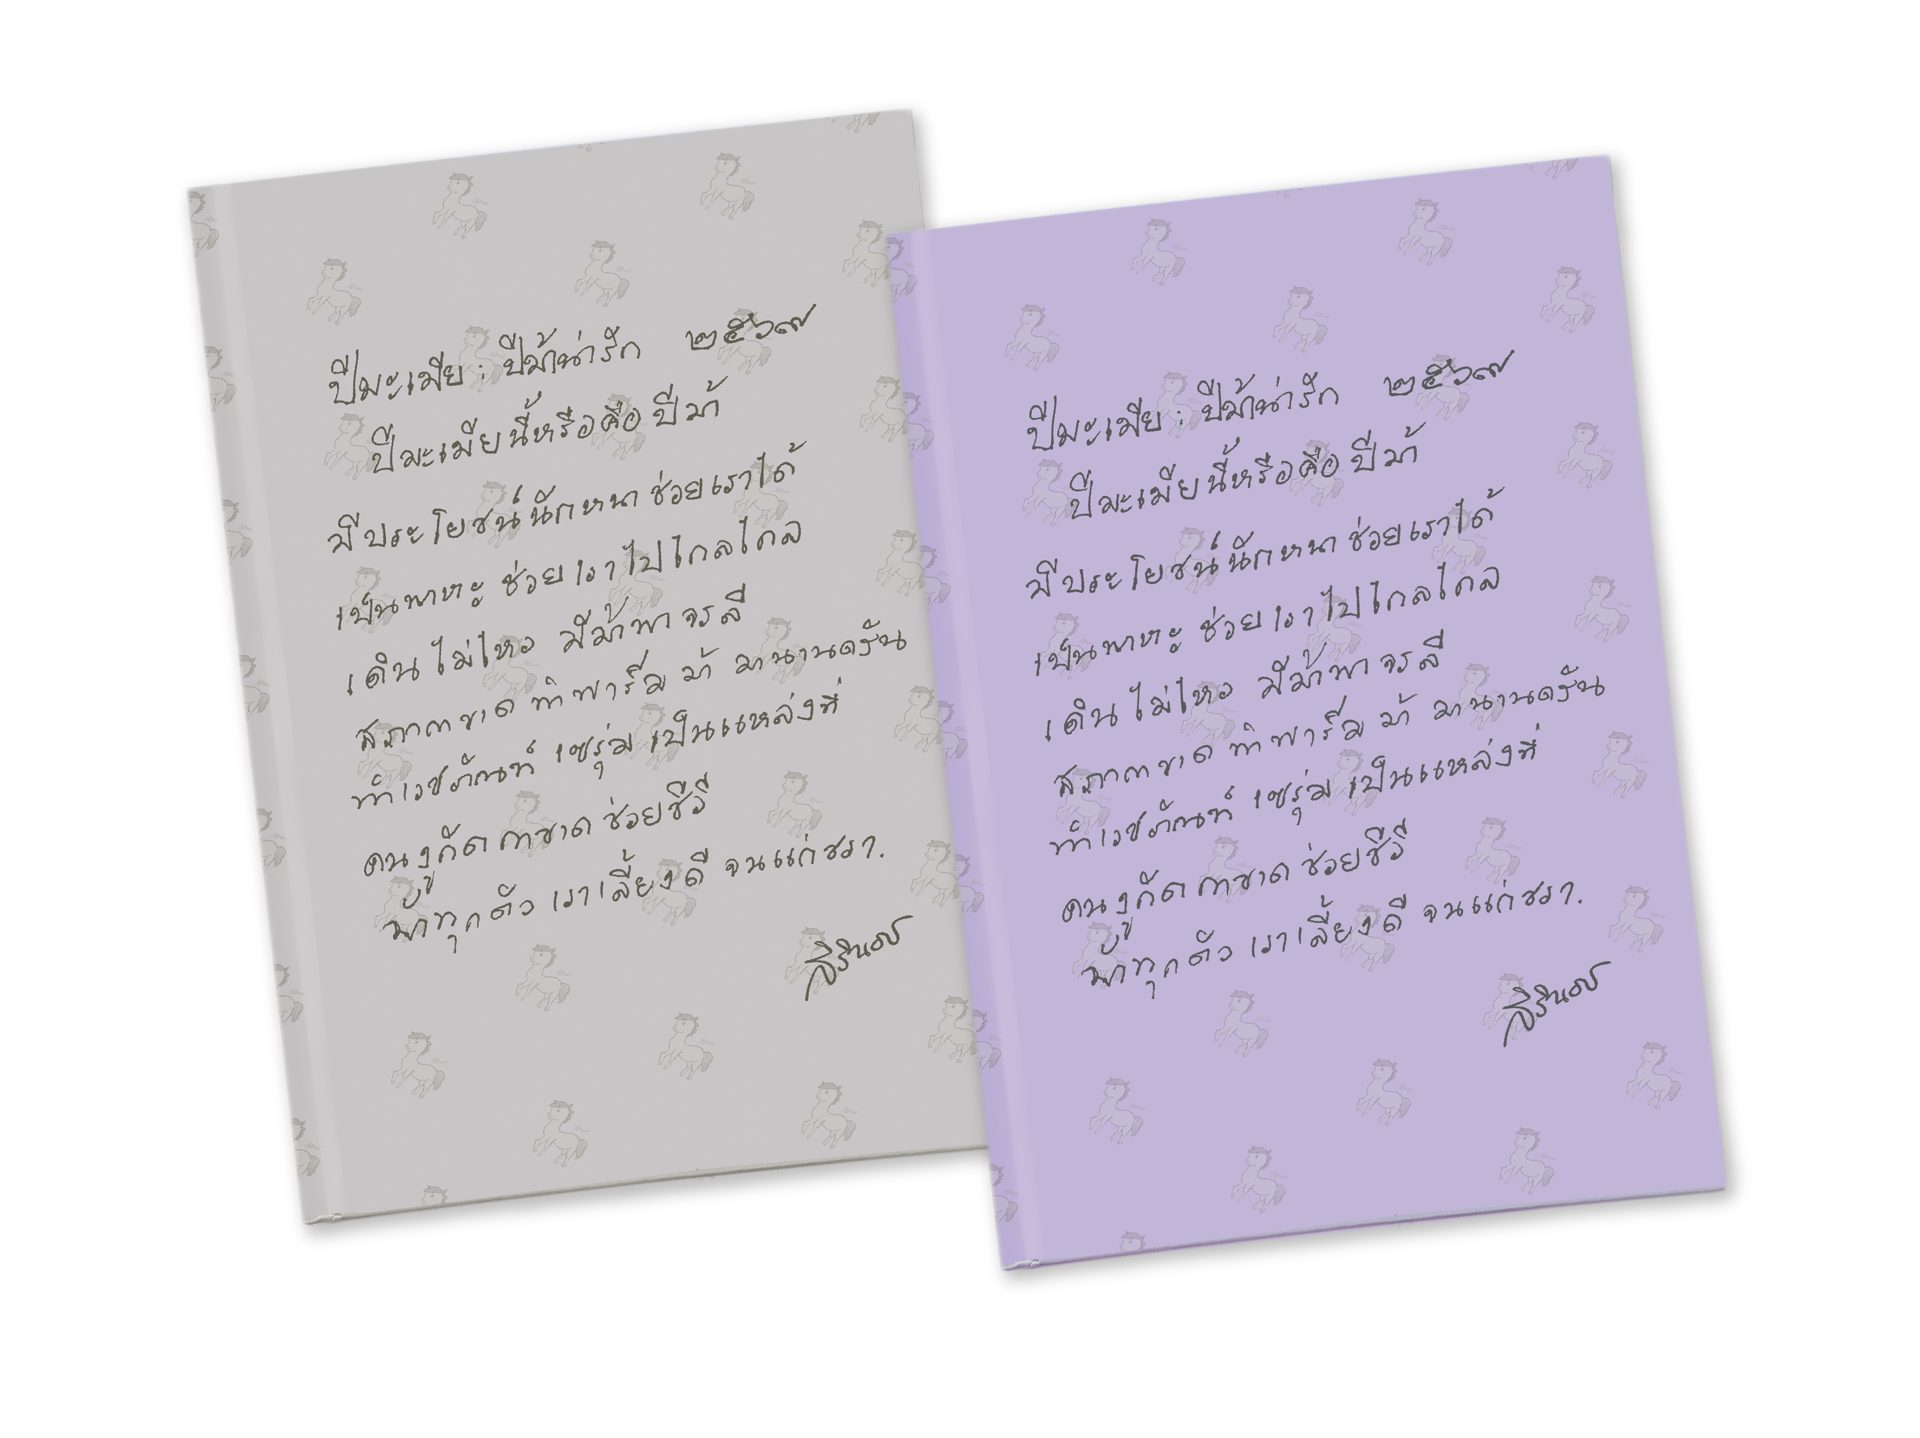 ปีมะเมีย : ปีม้าน่ารัก ๒๕๖๙
ปีมะเมียนี้หรือคือปีม้า
มีประโยชน์นักหนา ช่วยเราได้
เป็นพาหะ ช่วยเราไปไกลไกล
เดินไม่ไหว มีม้าพาจรลี
สภากาชาด ทำฟาร์ม ม้า มานานครัน
ทำเวชภัณฑ์ เซรุ่ม เป็นแหล่งที่
คนงูกัด กาชาด ช่วยชีวี
ม้าทุกตัว เราเลี้ยงดี จนแก่ชรา.
สิรินธร
ปีมะเมีย : ปีม้าน่ารัก ๒๕๖๙
ปีมะเมียนี้หรือคือปีม้า
มีประโยชน์นักหนา ช่วยเราได้
เป็นพาหะ ช่วยเราไปไกลไกล
เดินไม่ไหว มีม้าพาจรลี
สภากาชาด ทำฟาร์ม ม้า มานานครัน
ทำเวชภัณฑ์ เซรุ่ม เป็นแหล่งที่
คนงูกัด กาชาด ช่วยชีวี
ม้าทุกตัว เราเลี้ยงดี จนแก่ชรา.
สิรินธร